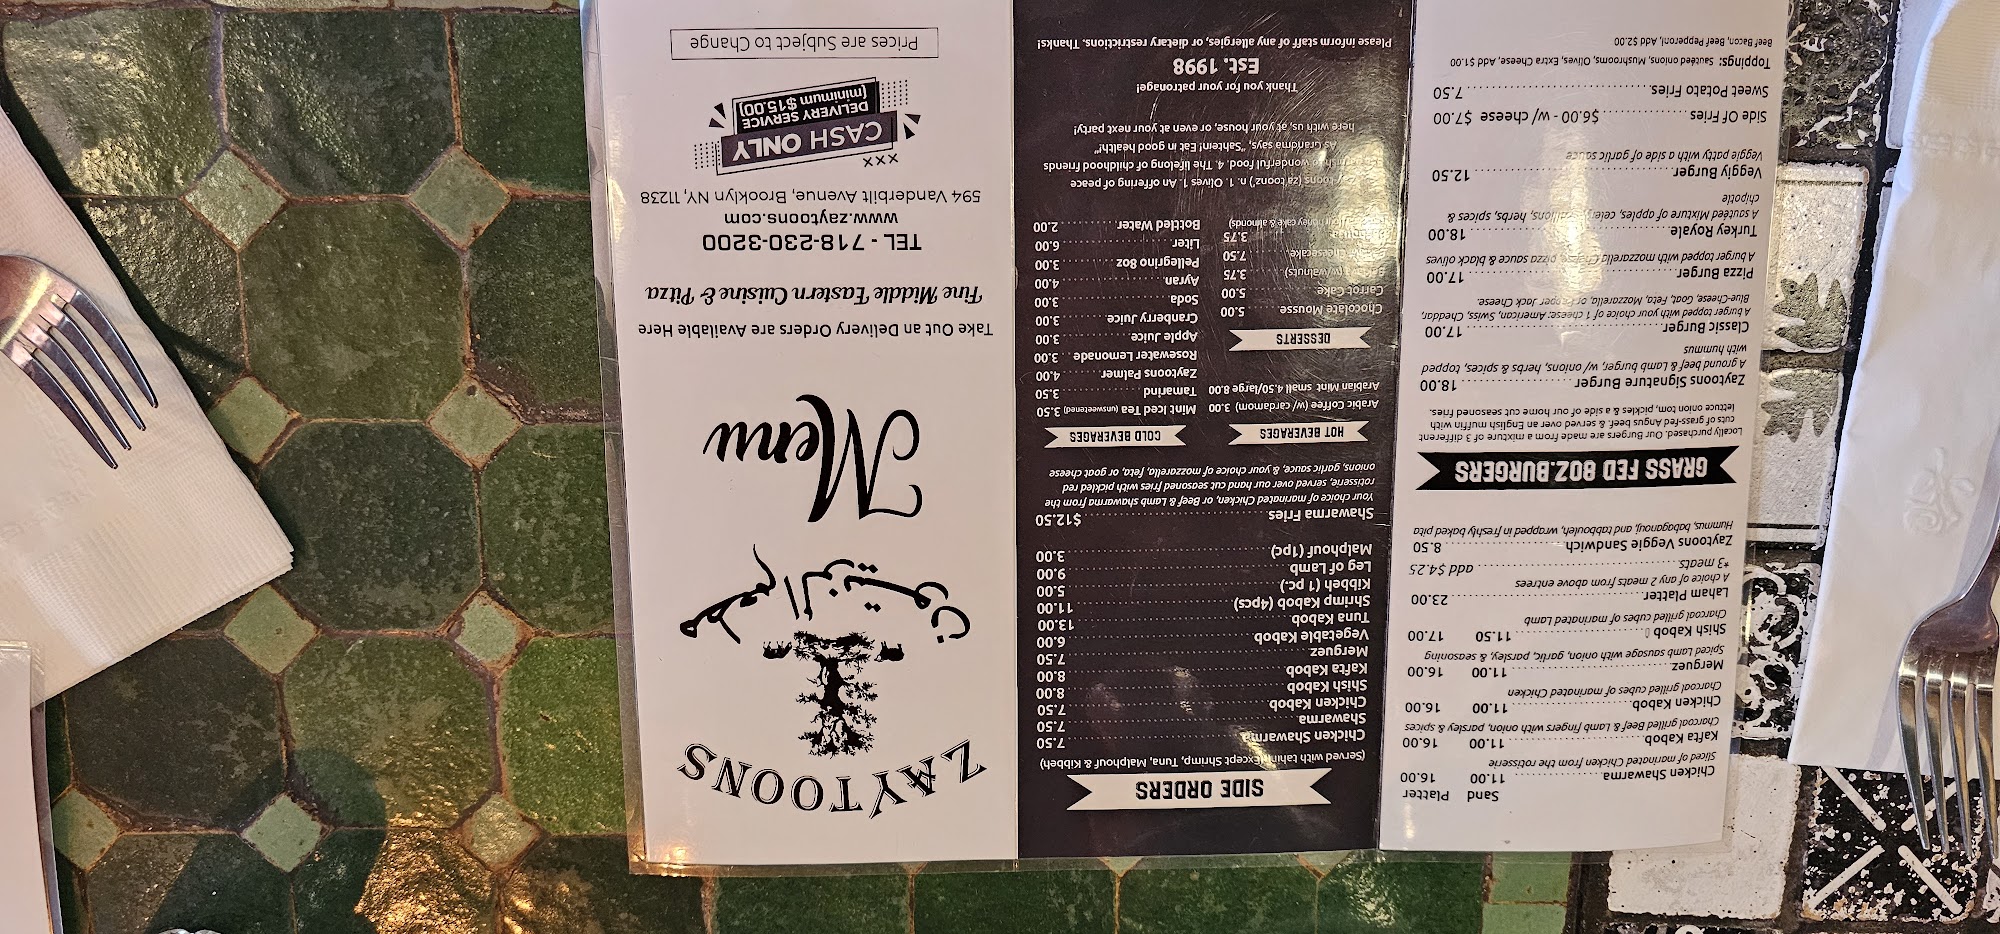 ZAYTOONS
مطعم الزيتون
Menu
Take Out an Delivery Orders are Available Here
Fine Middle Eastern Cuisine & Pitza
TEL - 718-230-3200
www.zaytoons.com
594 Vanderbilt Avenue, Brooklyn NY, 11238
xxx
CASH ONLY
DELIVERY SERVICE
(minimum $15.00)
Prices are Subject to Change
SIDE ORDERS
(Served with tahini Except Shrimp, Tuna, Malphouf & Kibbeh)
Chicken Shawarma 7.50
Shawarma 7.50
Chicken Kabob 7.50
Shish Kabob 8.00
Kafta Kabob 8.00
Merguez 7.50
Vegetable Kabob 6.00
Tuna Kabob 13.00
Shrimp Kabob (4pcs) 11.00
Kibbeh (1 pc.) 5.00
Leg of Lamb 9.00
Malphouf (1pc) 3.00
Shawarma Fries $12.50
Your choice of marinated Chicken, or Beef & Lamb shawarma from the
rotisserie, served over our hand cut seasoned fries with pickled red
onions, garlic sauce, & your choice of mozzarella, feta, or goat cheese
HOT BEVERAGES
Arabic Coffee (w/ cardamom) 3.00
Arabian Mint small 4.50/large 8.00
DESSERTS
Chocolate Mousse 5.00
Carrot Cake 5.00
(w/walnuts) 3.75
Cheesecake 7.50
3.75
honey cake & almonds)
COLD BEVERAGES
Mint Iced Tea (unsweetened) 3.50
Tamarind 3.50
Zaytoons Palmer 4.00
Rosewater Lemonade 3.00
Apple Juice 3.00
Cranberry Juice 3.00
Soda 3.00
Ayran 4.00
Pellegrino 8oz 3.00
Liter 6.00
Bottled Water 2.00
(za toonz') n. 1. Olives 1. An offering of peace
wonderful food. 4. The lifelong of childhood friends
As Grandma says, "Sahtein! Eat in good health!"
here with us, at your house, or even at your next party!
Thank you for your patronage!
Est. 1998
Please inform staff of any allergies, or dietary restrictions. Thanks!
Sand Platter
Chicken Shawarma 11.00 16.00
Sliced of marinated Chicken from the rotisserie
Kafta Kabob 11.00 16.00
Charcoal grilled Beef & Lamb fingers with onion, parsley & spices
Chicken Kabob 11.00 16.00
Charcoal grilled cubes of marinated Chicken
Merguez 11.00 16.00
Spiced Lamb sausage with onion, garlic, parsley, & seasoning
Shish Kabob 11.50 17.00
Charcoal grilled cubes of marinated Lamb
Laham Platter 23.00
A choice of any 2 meats from above entrees
*3 meats add $4.25
Zaytoons Veggie Sandwich 8.50
Hummus, babaganouj, and tabbouleh, wrapped in freshly baked pita
GRASS FED 8OZ.BURGERS
Locally purchased. Our Burgers are made from a mixture of 3 different
cuts of grass-fed Angus beef. & served over an English muffin with
lettuce onion tom, pickles & a side of our home cut seasoned fries.
Zaytoons Signature Burger 18.00
A ground beef & Lamb burger, w/ onions, herbs & spices, topped
with hummus
Classic Burger 17.00
A burger topped with your choice of 1 cheese: American, Swiss, Cheddar,
Blue-Cheese, Goat, Feta, Mozzarella, or Pepper Jack Cheese.
Pizza Burger 17.00
A burger topped with mozzarella cheese, pizza sauce & black olives
Turkey Royale 18.00
A sautéed Mixture of apples, celery, scallions, herbs, spices &
chipotle
Veggiy Burger 12.50
Veggie patty with a side of garlic sauce
Side Of Fries $6.00 - w/ cheese $7.00
Sweet Potato Fries 7.50
Toppings: Sautéed onions, Mushrooms, Olives, Extra Cheese, Add $1.00
Beef Bacon, Beef Pepperoni, Add $2.00